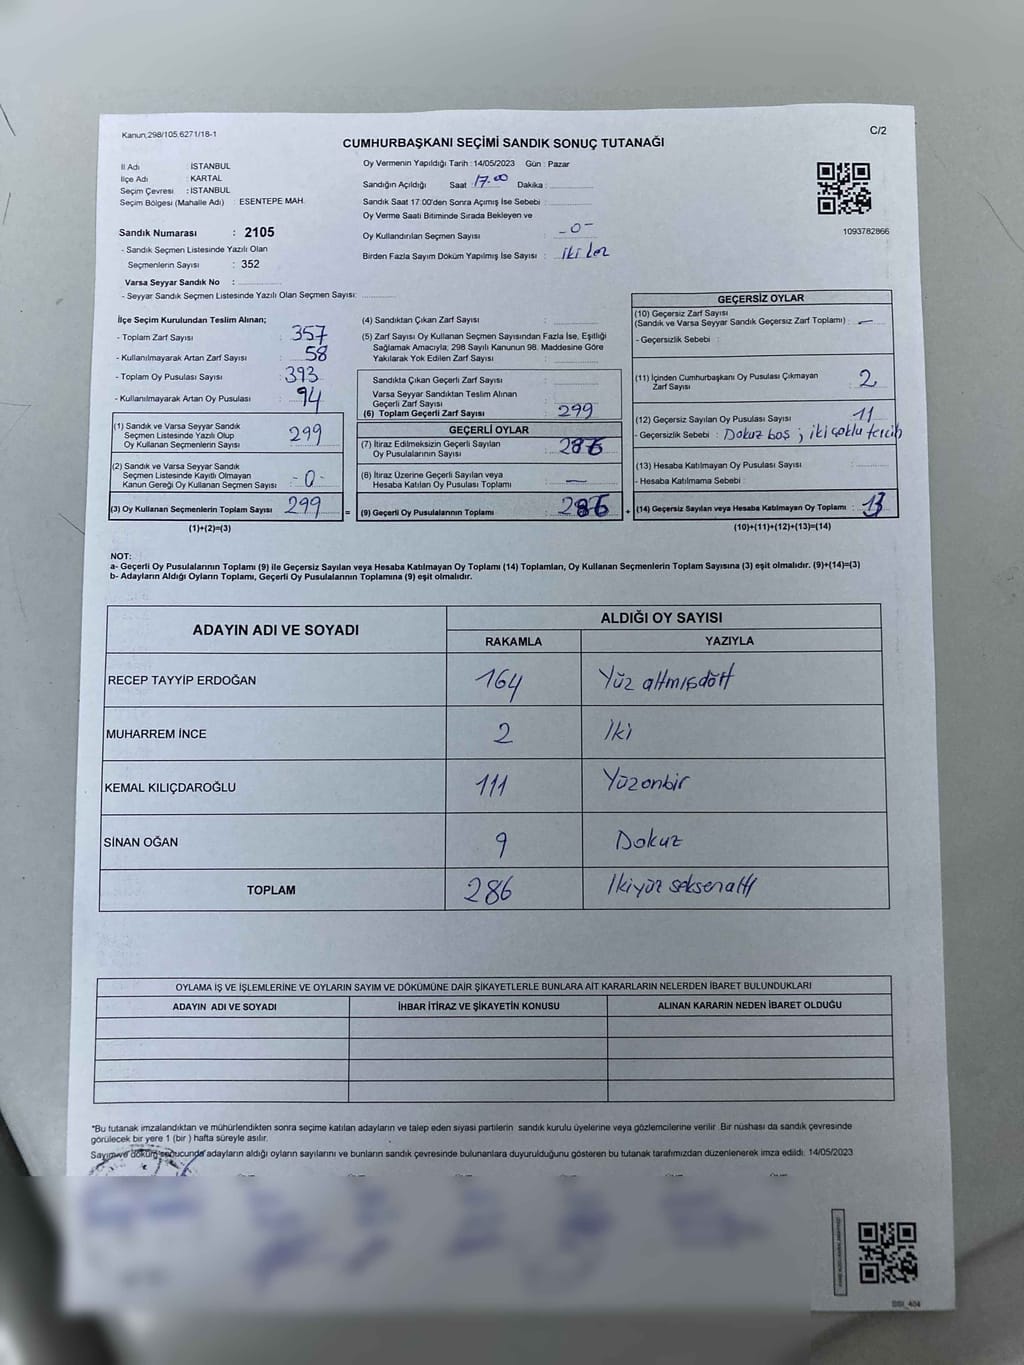 Kanun,298/105,6271/18-1
C/2
CUMHURBAŞKANI SEÇİMİ SANDIK SONUÇ TUTANAĞI
İl Adı : İSTANBUL
İlçe Adı : KARTAL
Seçim Çevresi : İSTANBUL
Seçim Bölgesi (Mahalle Adı) : ESENTEPE MAH.
Sandık Numarası : 2105
- Sandık Seçmen Listesinde Yazılı Olan
Seçmenlerin Sayısı : 352
Varsa Seyyar Sandık No :
- Seyyar Sandık Seçmen Listesinde Yazılı Olan Seçmen Sayısı:
Oy Vermenin Yapıldığı Tarih :14/05/2023 Gün : Pazar
Sandığın Açıldığı Saat : 17.00 Dakika :
Sandık Saat 17:00'den Sonra Açımış İse Sebebi :
Oy Verme Saati Bitiminde Sırada Bekleyen ve
Oy Kullandırılan Seçmen Sayısı : -0-
Birden Fazla Sayım Döküm Yapılmış İse Sayısı : iki
1093782866
İlçe Seçim Kurulundan Teslim Alınan;
- Toplam Zarf Sayısı : 357
- Kullanılmayarak Artan Zarf Sayısı : 58
- Toplam Oy Pusulası Sayısı : 393
- Kullanılmayarak Artan Oy Pusulası : 94
(1) Sandık ve Varsa Seyyar Sandık
Seçmen Listesinde Yazılı Olup
Oy Kullanan Seçmenlerin Sayısı : 299
(2) Sandık ve Varsa Seyyar Sandık
Seçmen Listesinde Kayıtlı Olmayan
Kanun Gereği Oy Kullanan Seçmen Sayısı : -0-
(3) Oy Kullanan Seçmenlerin Toplam Sayısı : 299 =
(1)+(2)=(3)
(4) Sandıktan Çıkan Zarf Sayısı :
(5) Zarf Sayısı Oy Kullanan Seçmen Sayısından Fazla İse, Eşitliği
Sağlamak Amacıyla; 298 Sayılı Kanunun 98. Maddesine Göre
Yakılarak Yok Edilen Zarf Sayısı :
Sandıkta Çıkan Geçerli Zarf Sayısı :
Varsa Seyyar Sandıktan Teslim Alınan
Geçerli Zarf Sayısı :
(6) Toplam Geçerli Zarf Sayısı : 299
GEÇERLİ OYLAR
(7) İtiraz Edilmeksizin Geçerli Sayılan
Oy Pusulalarının Sayısı : 286
(8) İtiraz Üzerine Geçerli Sayılan veya
Hesaba Katılan Oy Pusulası Toplamı : —
(9) Geçerli Oy Pusulalarının Toplamı : 286 +
GEÇERSİZ OYLAR
(10) Geçersiz Zarf Sayısı
(Sandık ve Varsa Seyyar Sandık Geçersiz Zarf Toplamı) : —
- Geçersizlik Sebebi :
(11) İçinden Cumhurbaşkanı Oy Pusulası Çıkmayan
Zarf Sayısı : 2
(12) Geçersiz Sayılan Oy Pusulası Sayısı : 11
- Geçersizlik Sebebi : Dokuz boş ; iki çoklu tercih
(13) Hesaba Katılmayan Oy Pusulası Sayısı :
- Hesaba Katılmama Sebebi :
(14) Geçersiz Sayılan veya Hesaba Katılmayan Oy Toplamı : 13
(10)+(11)+(12)+(13)=(14)
NOT:
a- Geçerli Oy Pusulalarının Toplamı (9) ile Geçersiz Sayılan veya Hesaba Katılmayan Oy Toplamı (14) Toplamları, Oy Kullanan Seçmenlerin Toplam Sayısına (3) eşit olmalıdır. (9)+(14)=(3)
b- Adayların Aldığı Oyların Toplamı, Geçerli Oy Pusulalarının Toplamına (9) eşit olmalıdır.
ADAYIN ADI VE SOYADI
ALDIĞI OY SAYISI
RAKAMLA YAZIYLA
RECEP TAYYİP ERDOĞAN 164 Yüz altmışdört
MUHARREM İNCE 2 İki
KEMAL KILIÇDAROĞLU 111 Yüzonbir
SİNAN OĞAN 9 Dokuz
TOPLAM 286 İkiyüz seksenaltı
OYLAMA İŞ VE İŞLEMLERİNE VE OYLARIN SAYIM VE DÖKÜMÜNE DAİR ŞİKAYETLERLE BUNLARA AİT KARARLARIN NELERDEN İBARET BULUNDUKLARI
ADAYIN ADI VE SOYADI İHBAR İTİRAZ VE ŞİKAYETİN KONUSU ALINAN KARARIN NEDEN İBARET OLDUĞU
*Bu tutanak imzalandıktan ve mühürlendikten sonra seçime katılan adayların ve talep eden siyasi partilerin sandık kurulu üyelerine veya gözlemcilerine verilir .Bir nüshası da sandık çevresinde
görülecek bir yere 1 (bir ) hafta süreyle asılır.
Sayım ve döküm sonucunda adayların aldığı oyların sayılarını ve bunların sandık çevresinde bulunanlara duyurulduğunu gösteren bu tutanak tarafımızdan düzenlenerek imza edildi. 14/05/2023